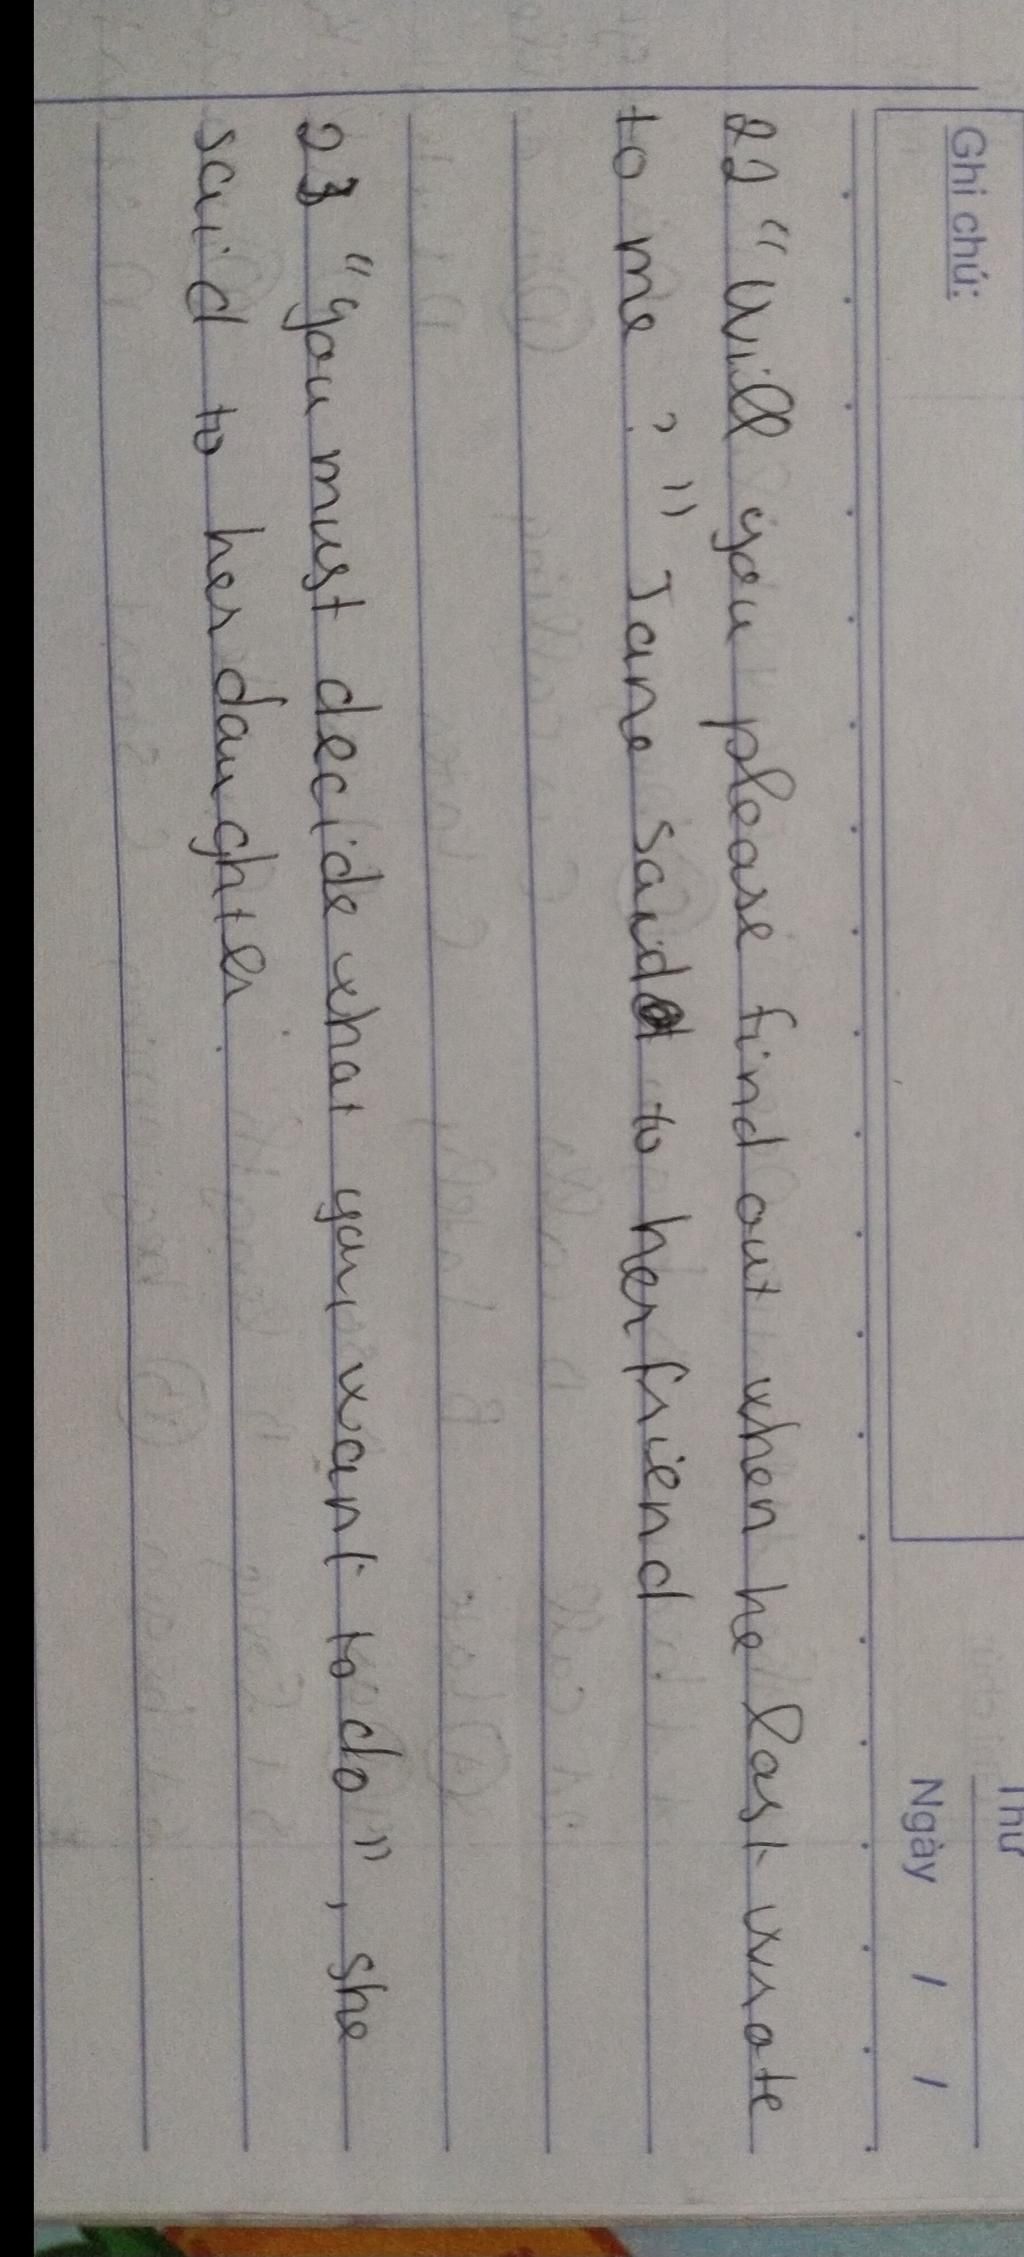 Thứ
Ghi chú:
Ngày / /
22 "Will you please find out when he last wrote
to me?" Jane said to her friend
23 "you must decide what you want to do", she
said to her daughter.